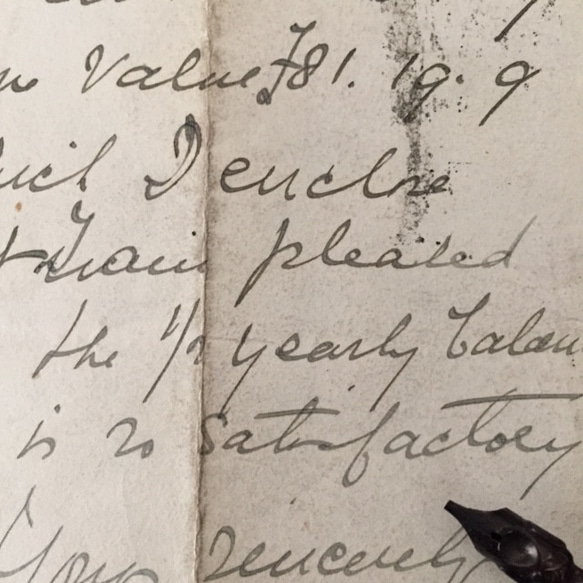 Value £81. 19. 9
I enclose
I am pleased
the 1/2 yearly balan
is so satisfactory
Yours sincerely